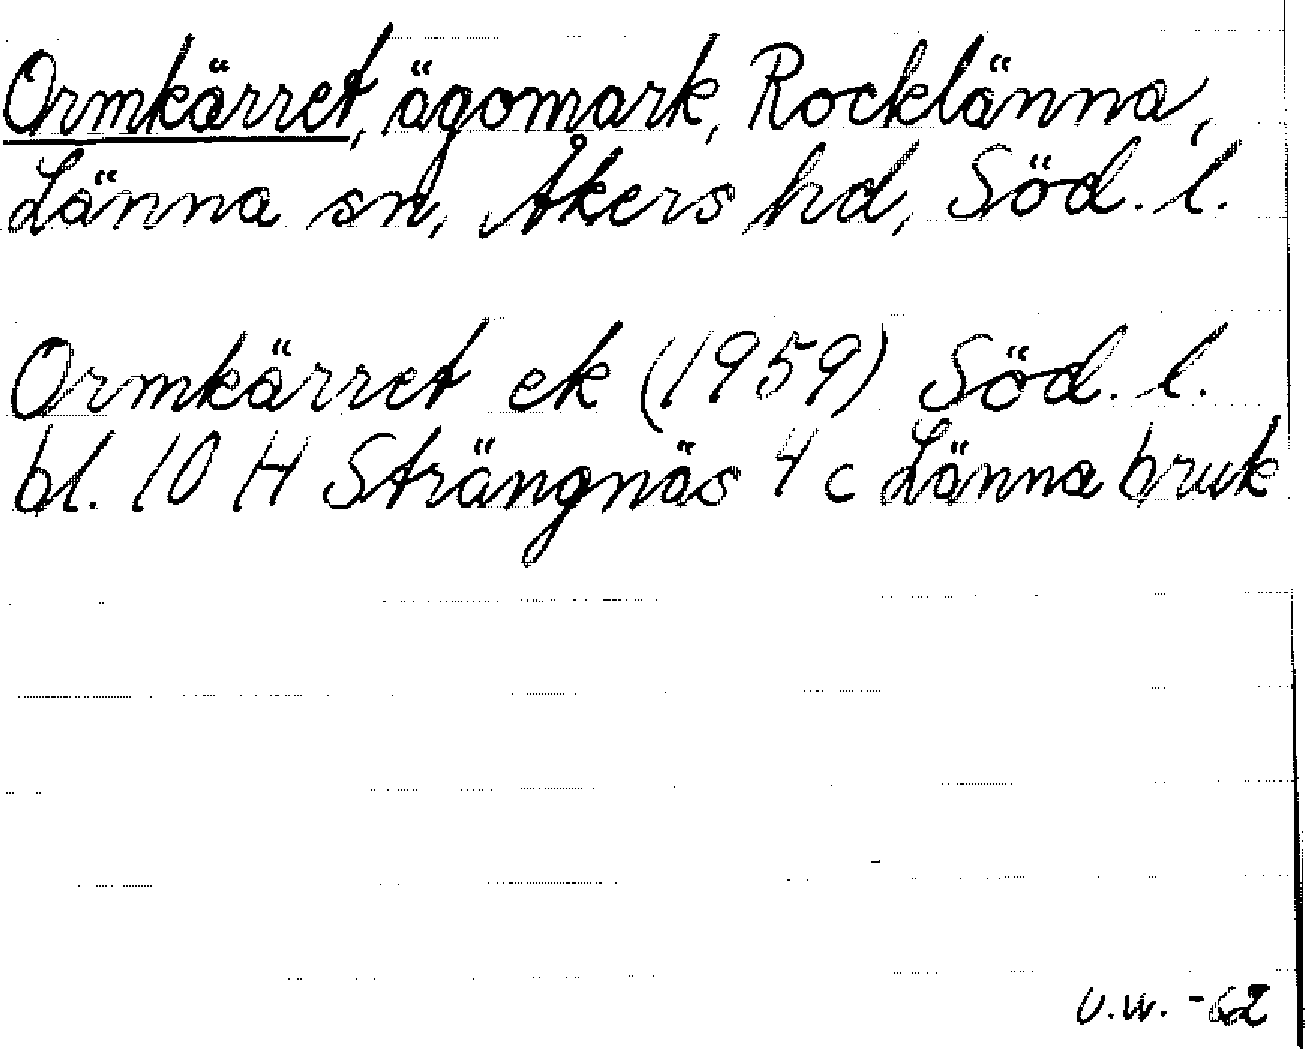 Ormkärret, ägomark, Rocklänna,
Länna sn, Åkers hd, Söd. l.
Ormkärret ek (1959) Söd. l.
bl. 10 H Strängnäs 4 c Länna bruk
U.W. -62